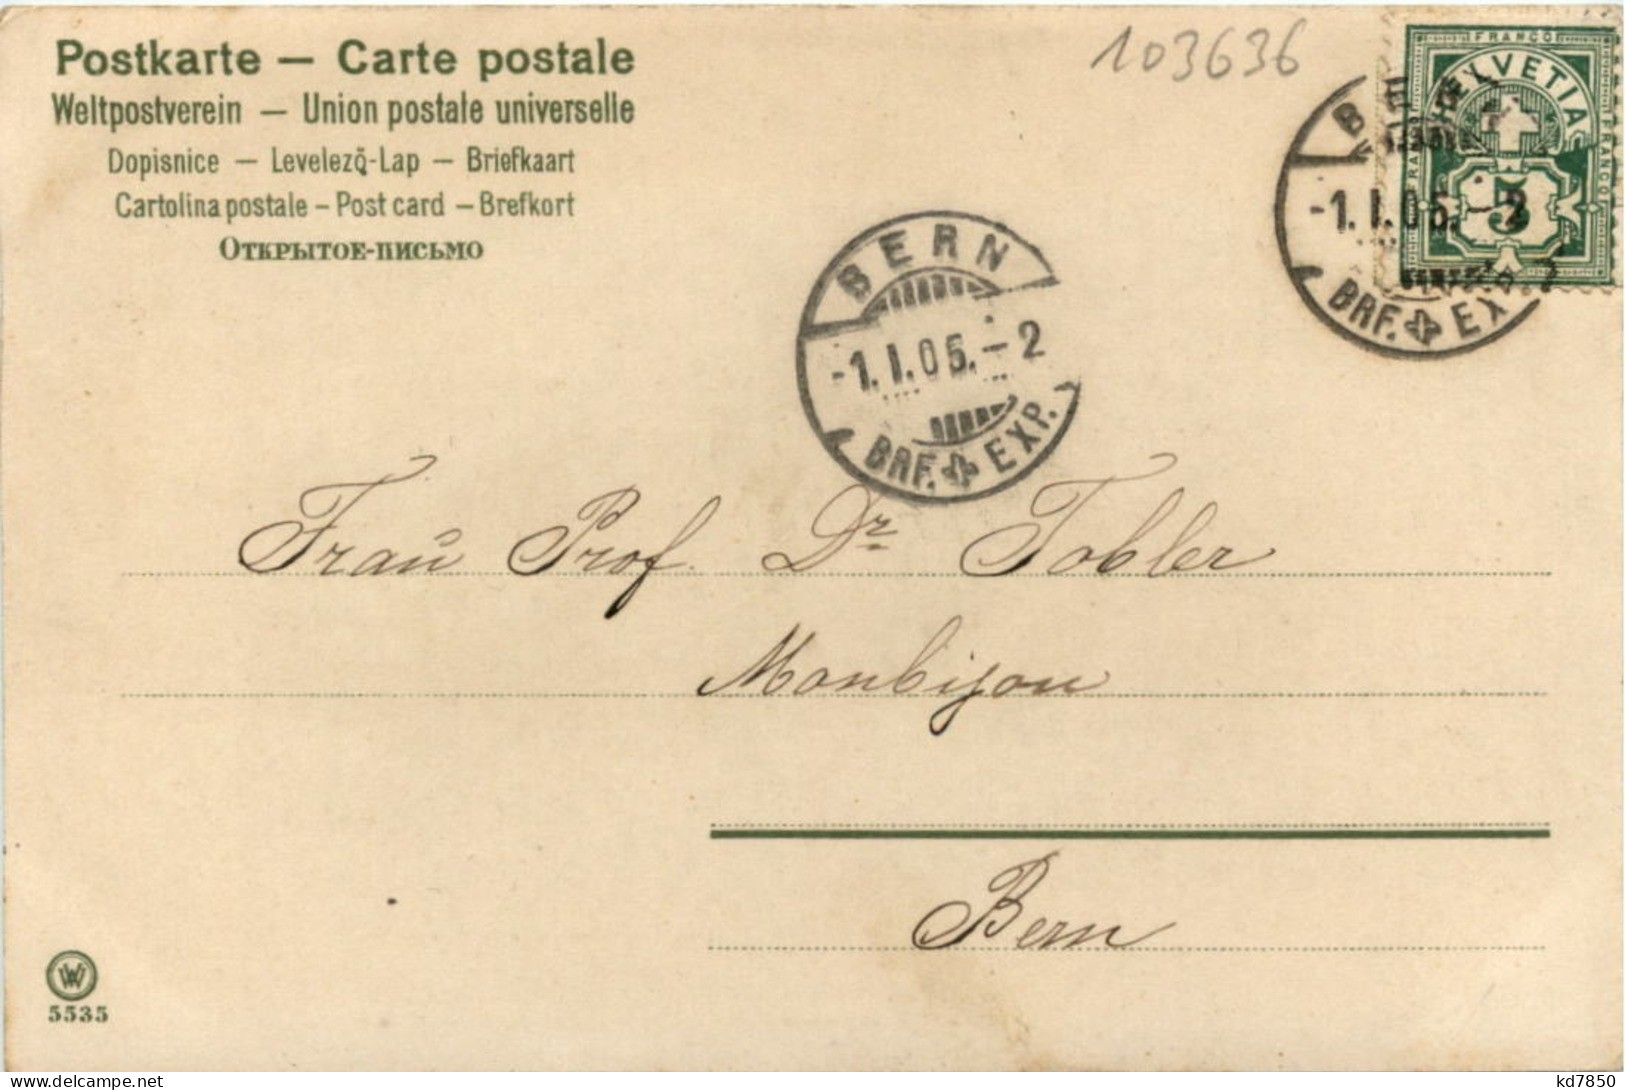 Postkarte — Carte postale
Weltpostverein — Union postale universelle
Dopisnice — Levelező-Lap — Briefkaart
Cartolina postale — Post card — Brefkort
Открытое-письмо
103636
FRANCO
HELVETIA
FRANCO
5
BERN
-1.I.05.-2
BRF. EXP.
BERN
-1.I.05.-2
BRF. EXP.
Frau Prof. Dr. Tobler
Monbijou
Bern
W
5535
www.delcampe.net
kd7850